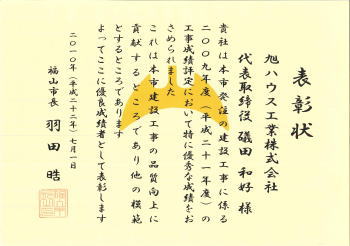 表彰状
旭ハウス工業株式会社
代表取締役 礒田 和好 様
貴社は本市発注の建設工事に係る
二〇〇九年度(平成二十一年度)の
工事成績評定において特に優秀な成績をお
さめられました
これは本市建設工事の品質向上に
貢献するところであり他の模範
とするところであります
よってここに優良成績者として表彰します
二〇一〇年(平成二十二年)七月一日
福山市長 羽田 皓